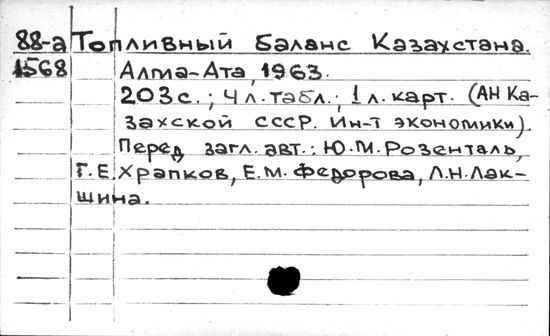 88-а Топливный баланс Казахстана.
1568 Алма-Ата, 1963.
203с.; 4 л. табл.; 1 л. карт. (АН Ка-
захской ССР. Ин-т экономики).
Перед загл. авт.: Ю.М. Розенталь,
Г.Е. Храпков, Е.М. Федорова, Л.Н. Лак-
шина.